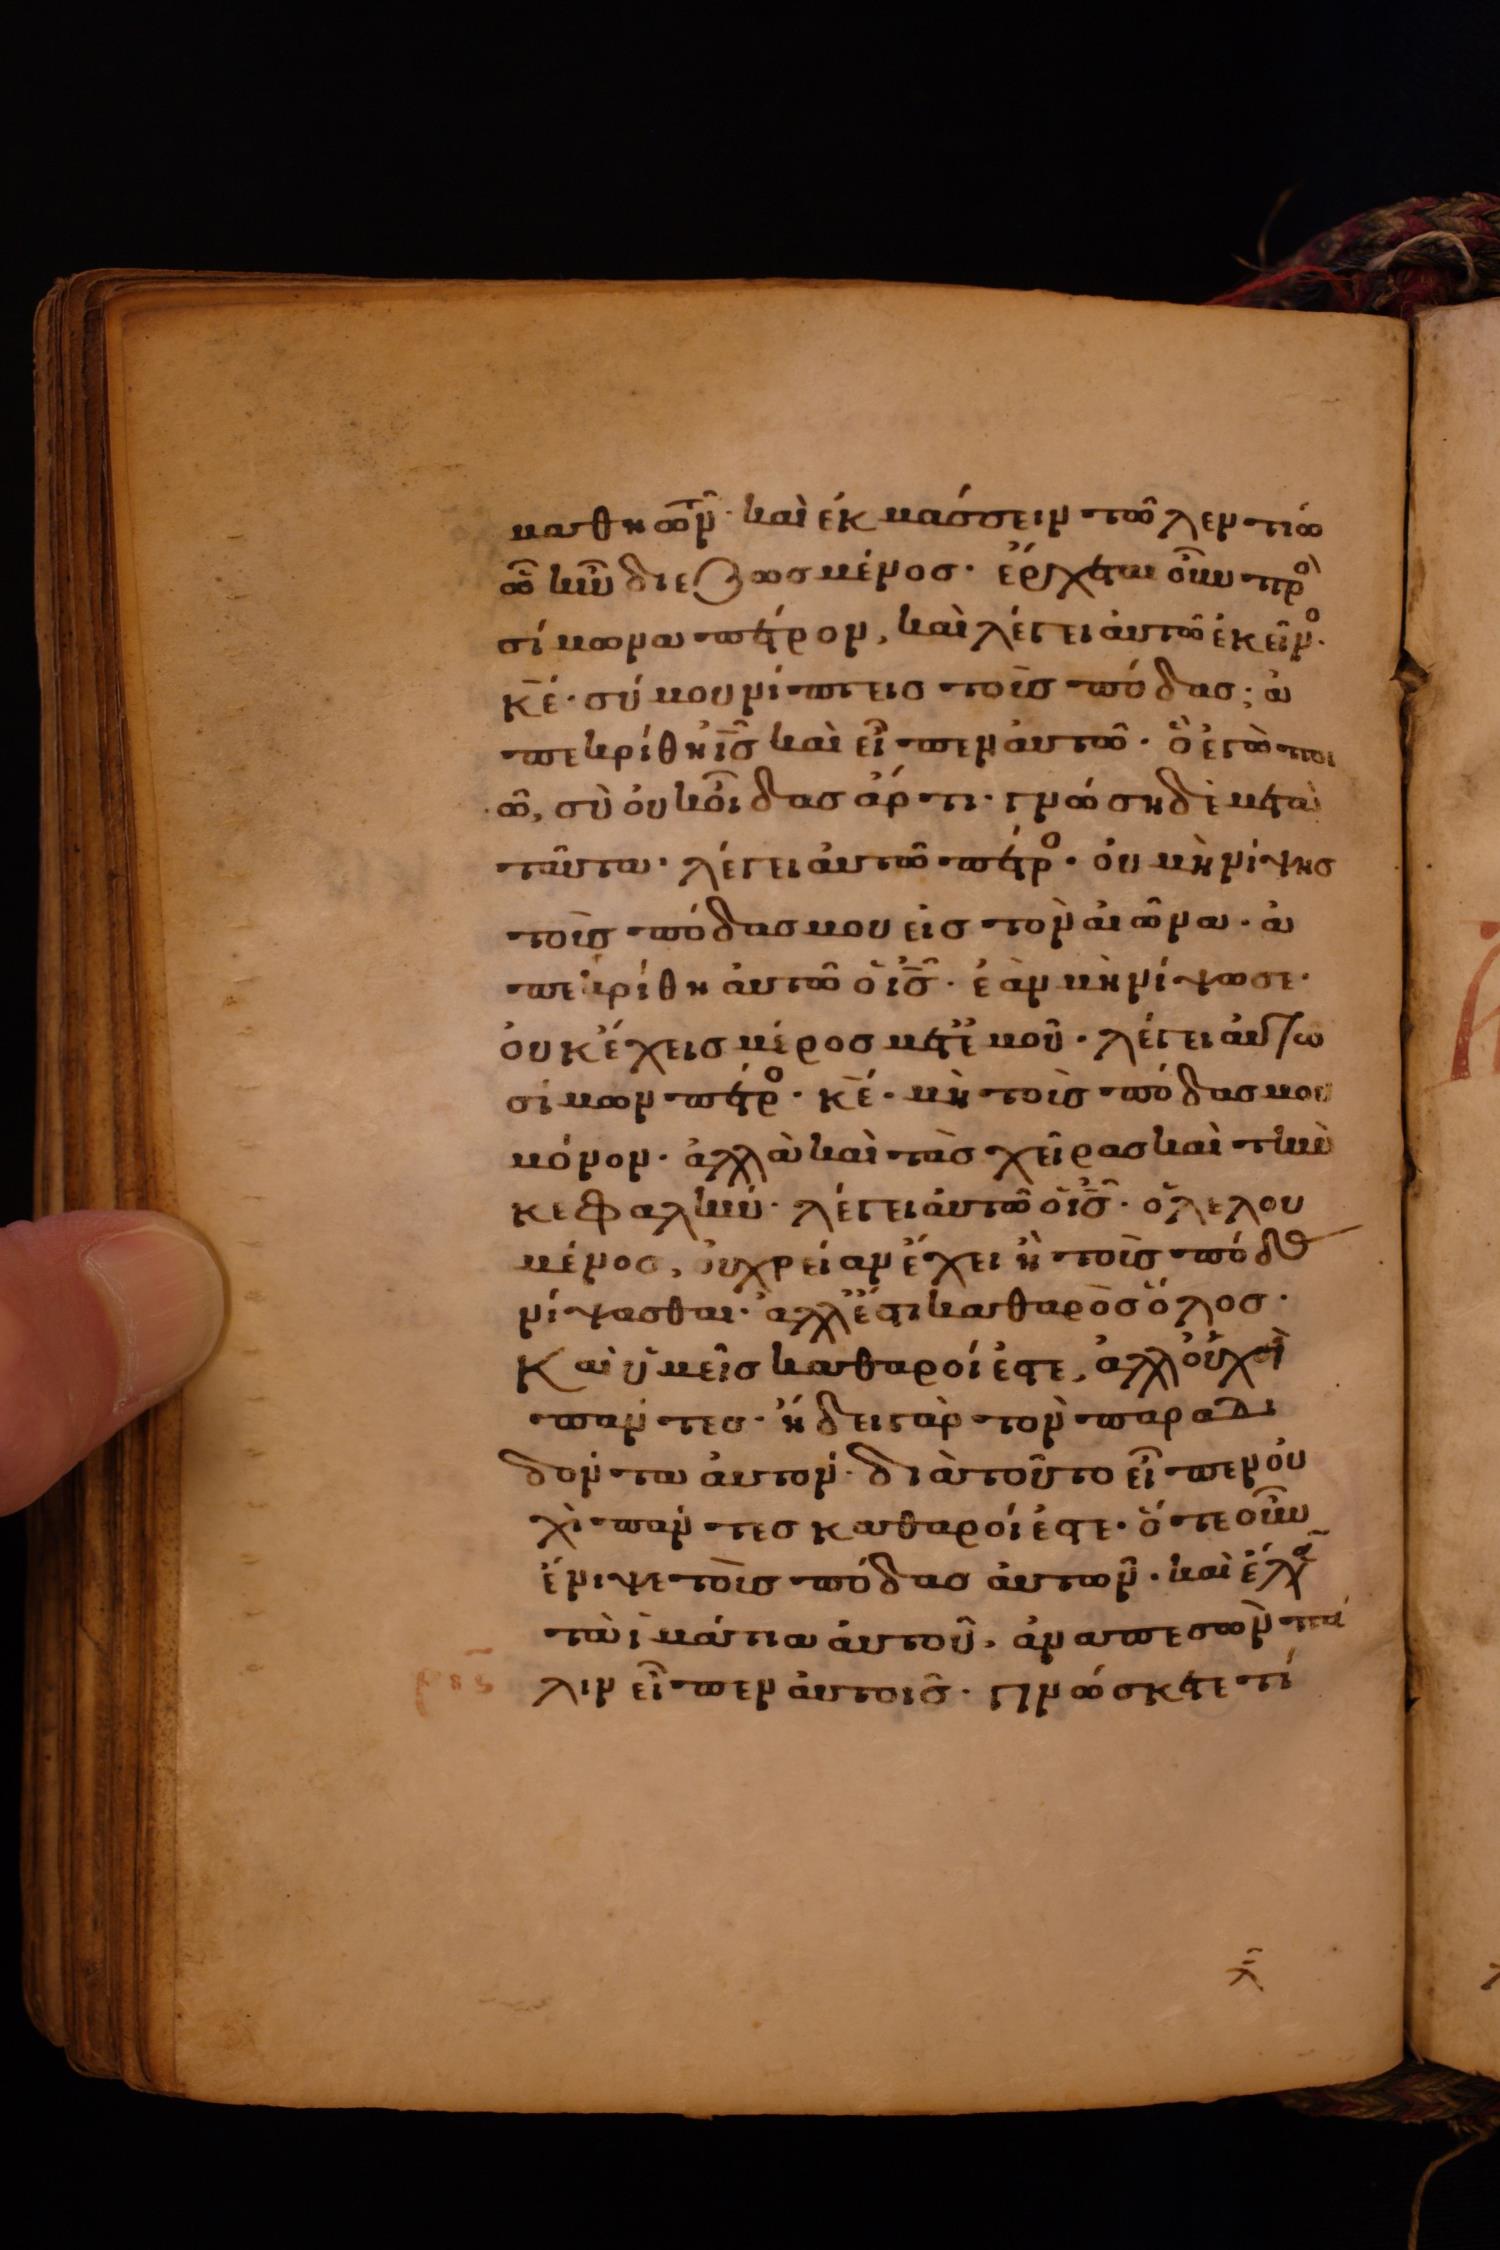 μαθητῶν· καὶ ἐκμάσσειν τῶ λεντίω
ὧ ἦν διεζωσμένος· ἔρχεται οὖν πρὸ
σίμωνα πέτρον, καὶ λέγει αὐτῶ ἐκεῖνο·
κ̅ε̅· σύ μου νίπτεις τοὺς πόδας; ἀ
πεκρίθη ι̅ς̅ καὶ εἶπεν αὐτῶ· ὃ ἐγὼ ποι
ῶ, σὺ οὐκ οἶδας ἄρτι· γνώση δὲ μετὰ
ταῦτα· λέγει αὐτῶ πέτρο· οὐ μὴ νίψης
τοὺς πόδας μου εἰς τὸν αἰῶνα· ἀ
πεκρίθη αὐτῶ ὁ ι̅ς̅· ἐὰν μὴ νίψω σε·
οὐκ ἔχεις μέρος μετ ἐμοῦ· λέγει αὐτῶ
σίμων πέτρο· κ̅ε̅· μὴ τοὺς πόδας μου
μόνον· ἀλλὰ καὶ τὰς χεῖρας καὶ τὴν
κεφαλήν· λέγει αὐτῶ ὁ ι̅ς̅· ὁ λελου
μένος, οὐ χρείαν ἔχει ἢ τοὺς πόδας
νίψασθαι· ἀλλ ἔστι καθαρὸς ὅλος·
Καὶ ὑμεῖς καθαροί ἐστε, ἀλλ οὐχὶ
πάντες· ἤδει γὰρ τὸν παραδι
δόντα αὐτόν· διὰ τοῦτο εἶπεν οὐ
χὶ πάντες καθαροί ἐστε· ὅτε οὖν
ἔνιψε τοὺς πόδας αὐτῶν· καὶ ἔλα
τὰ ἱμάτια αὐτοῦ, ἀναπεσὼν πά
λιν εἶπεν αὐτοῖς· γινώσκετε τί